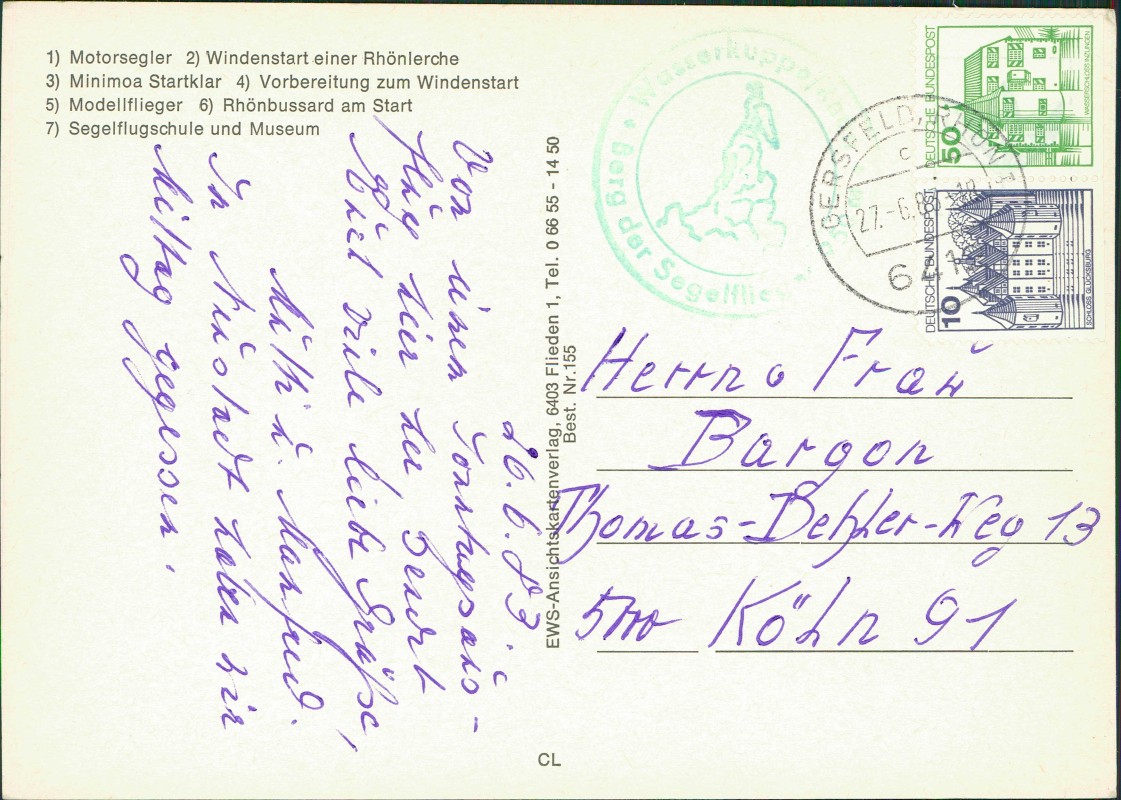 1) Motorsegler 2) Windenstart einer Rhönlerche
3) Minimoa Startklar 4) Vorbereitung zum Windenstart
5) Modellflieger 6) Rhönbussard am Start
7) Segelflugschule und Museum
26.6.83.
Von einem Sonntagsaus-
flug hier her sendet
Euch viele liebe Grüße,
Käthi u. Manfred.
In Neustadt haben wir
Mittag gegessen.
EWS-Ansichtskartenverlag, 6403 Flieden 1, Tel. 0 66 55 - 14 50
Best. Nr.155
CL
Wasserkuppe
Berg der Segelflieger
GERSFELD, RHÖN 1
c
27.-6.83-18
641
DEUTSCHE BUNDESPOST
50
WASSERSCHLOSS INZLINGEN
DEUTSCHE BUNDESPOST
10
SCHLOSS GLÜCKSBURG
Herrn u Frau
Bargon
Thomas-Dehler-Weg 13
5000 Köln 91